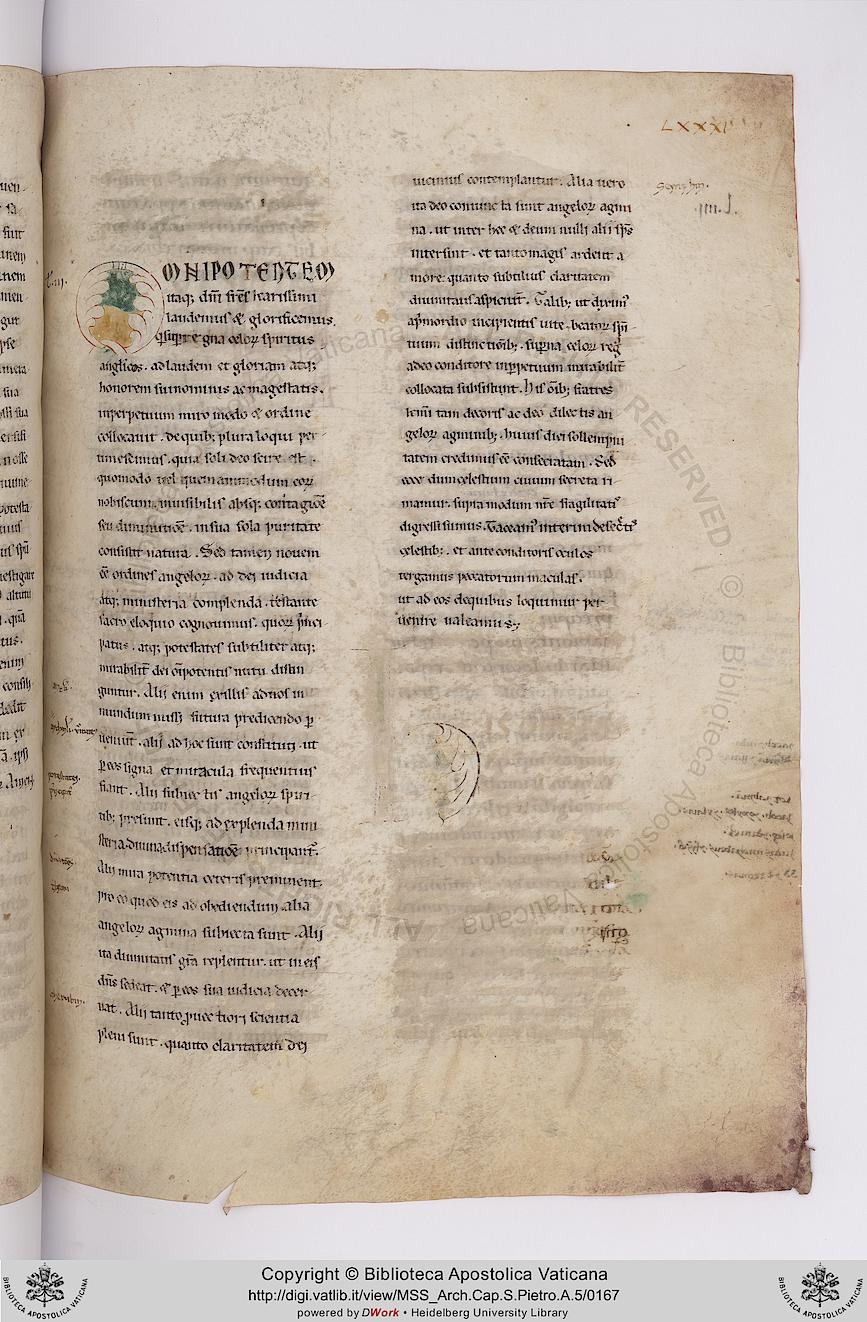 LXXXI
OMNIPOTENTEM
itaq; dn̄m frēs karissimi
laudemus & glorificemus.
qui regna celoꝝ spiritus
angłicos. ad laudem et gloriam atq;
honorem sui nominis ac magestatis.
inperpetuum miro modo & ordine
collocauit. de quib; plura loqui per
timescimus. quia soli deo scire est.
quomodo uel quem ammodum eoꝝ
nobiscum inuisibilis absq; contagiōe
seu diminutiōe. in sua sola puritate
consistit natura. Sed tamen nouem
eē ordines angeloꝝ. ad dei iudicia
atq; ministeria complenda. testante
sacro eloquio cognouimus. quoꝝ pͥnci
patus. atq; potestates subtiliter atq;
mirabilit̄ dei om̄ipotentis nutu distin
guntur. Alij enim ex illis ad nos in
mundum missi futura predicendo ꝑ
ueniunt. alij ad hoc sunt constituti. ut
ꝑ eos signa et miracula frequentius
fiant. Alij subiectis angeloꝝ spiri
tib; presunt. eisq; ad explenda mini
steria diuina dispensatiōe principant᷑.
Alij mira potentia ceteris preminent.
pro eo quod eis ad obediendum. alia
angeloꝝ agmina subiecta sunt. Alij
ita diuinitatis gr̄a replentur. ut in eis
dn̄s sedeat. & ꝑ eos sua iudicia decer
nat. Alij tanto ꝓuectiori scientia
pleni sunt. quanto claritatem dei
uicinius contemplantur. Alia uero
ita deo coniuncta sunt angeloꝝ agmi
na. ut inter hoc & deum nulli alij sp̄s
intersint. et tanto magis ardent a
more. quanto subtilius claritatem
diuinitatis aspiciunt. Talib; ut diximꝰ
a pͥmordio incipientis uite. beatoꝝ spū
tuum distinctiōib;. supͥna celoꝝ reḡ
adeo conditore inꝑpetuum mirabilit̄
collocata subsistunt. His ōib; fratres
km̄i tam decoris ac deo dilectis an
geloꝝ agminib; huius diei sollempni
tatem credimus eē consecratam. Sed
ecce dum celestium ciuium secreta ri
mamur. supra modum nr̄e fragilitatis
digressi sumus. Taceamꝰ interim de secͥtis
celestib;. et ante conditoris oculos
tergamus peccatorum maculas.
ut ad eos de quibus loquimur per
uenire ualeamus.
Copyright © Biblioteca Apostolica Vaticana
http://digi.vatlib.it/view/MSS_Arch.Cap.S.Pietro.A.5/0167
powered by DWork • Heidelberg University Library
BIBLIOTECA APOSTOLICA VATICANA
BIBLIOTECA APOSTOLICA VATICANA